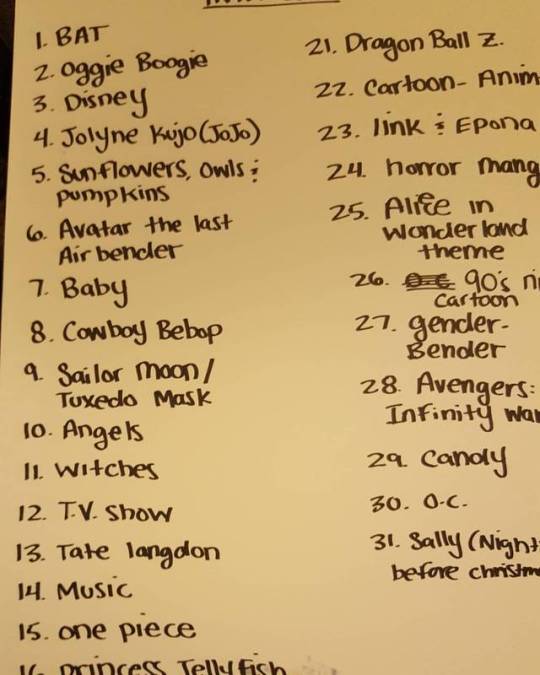 1. BAT
2. Oggie Boogie
3. Disney
4. Jolyne Kujo (JoJo)
5. Sunflowers, Owls &
pumpkins
6. Avatar the last
Air bender
7. Baby
8. Cowboy Bebop
9. Sailor moon /
Tuxedo Mask
10. Angels
11. Witches
12. T.V. Show
13. Tate langdon
14. Music
15. one piece
16. princess Jellyfish
21. Dragon Ball Z.
22. Cartoon - Anim
23. link & Epona
24. horror mang
25. Alice in
Wonder land
theme
26. 90's ni
Cartoon
27. gender-
Bender
28. Avengers:
Infinity war
29. Candy
30. O.C.
31. Sally (Night
before christm